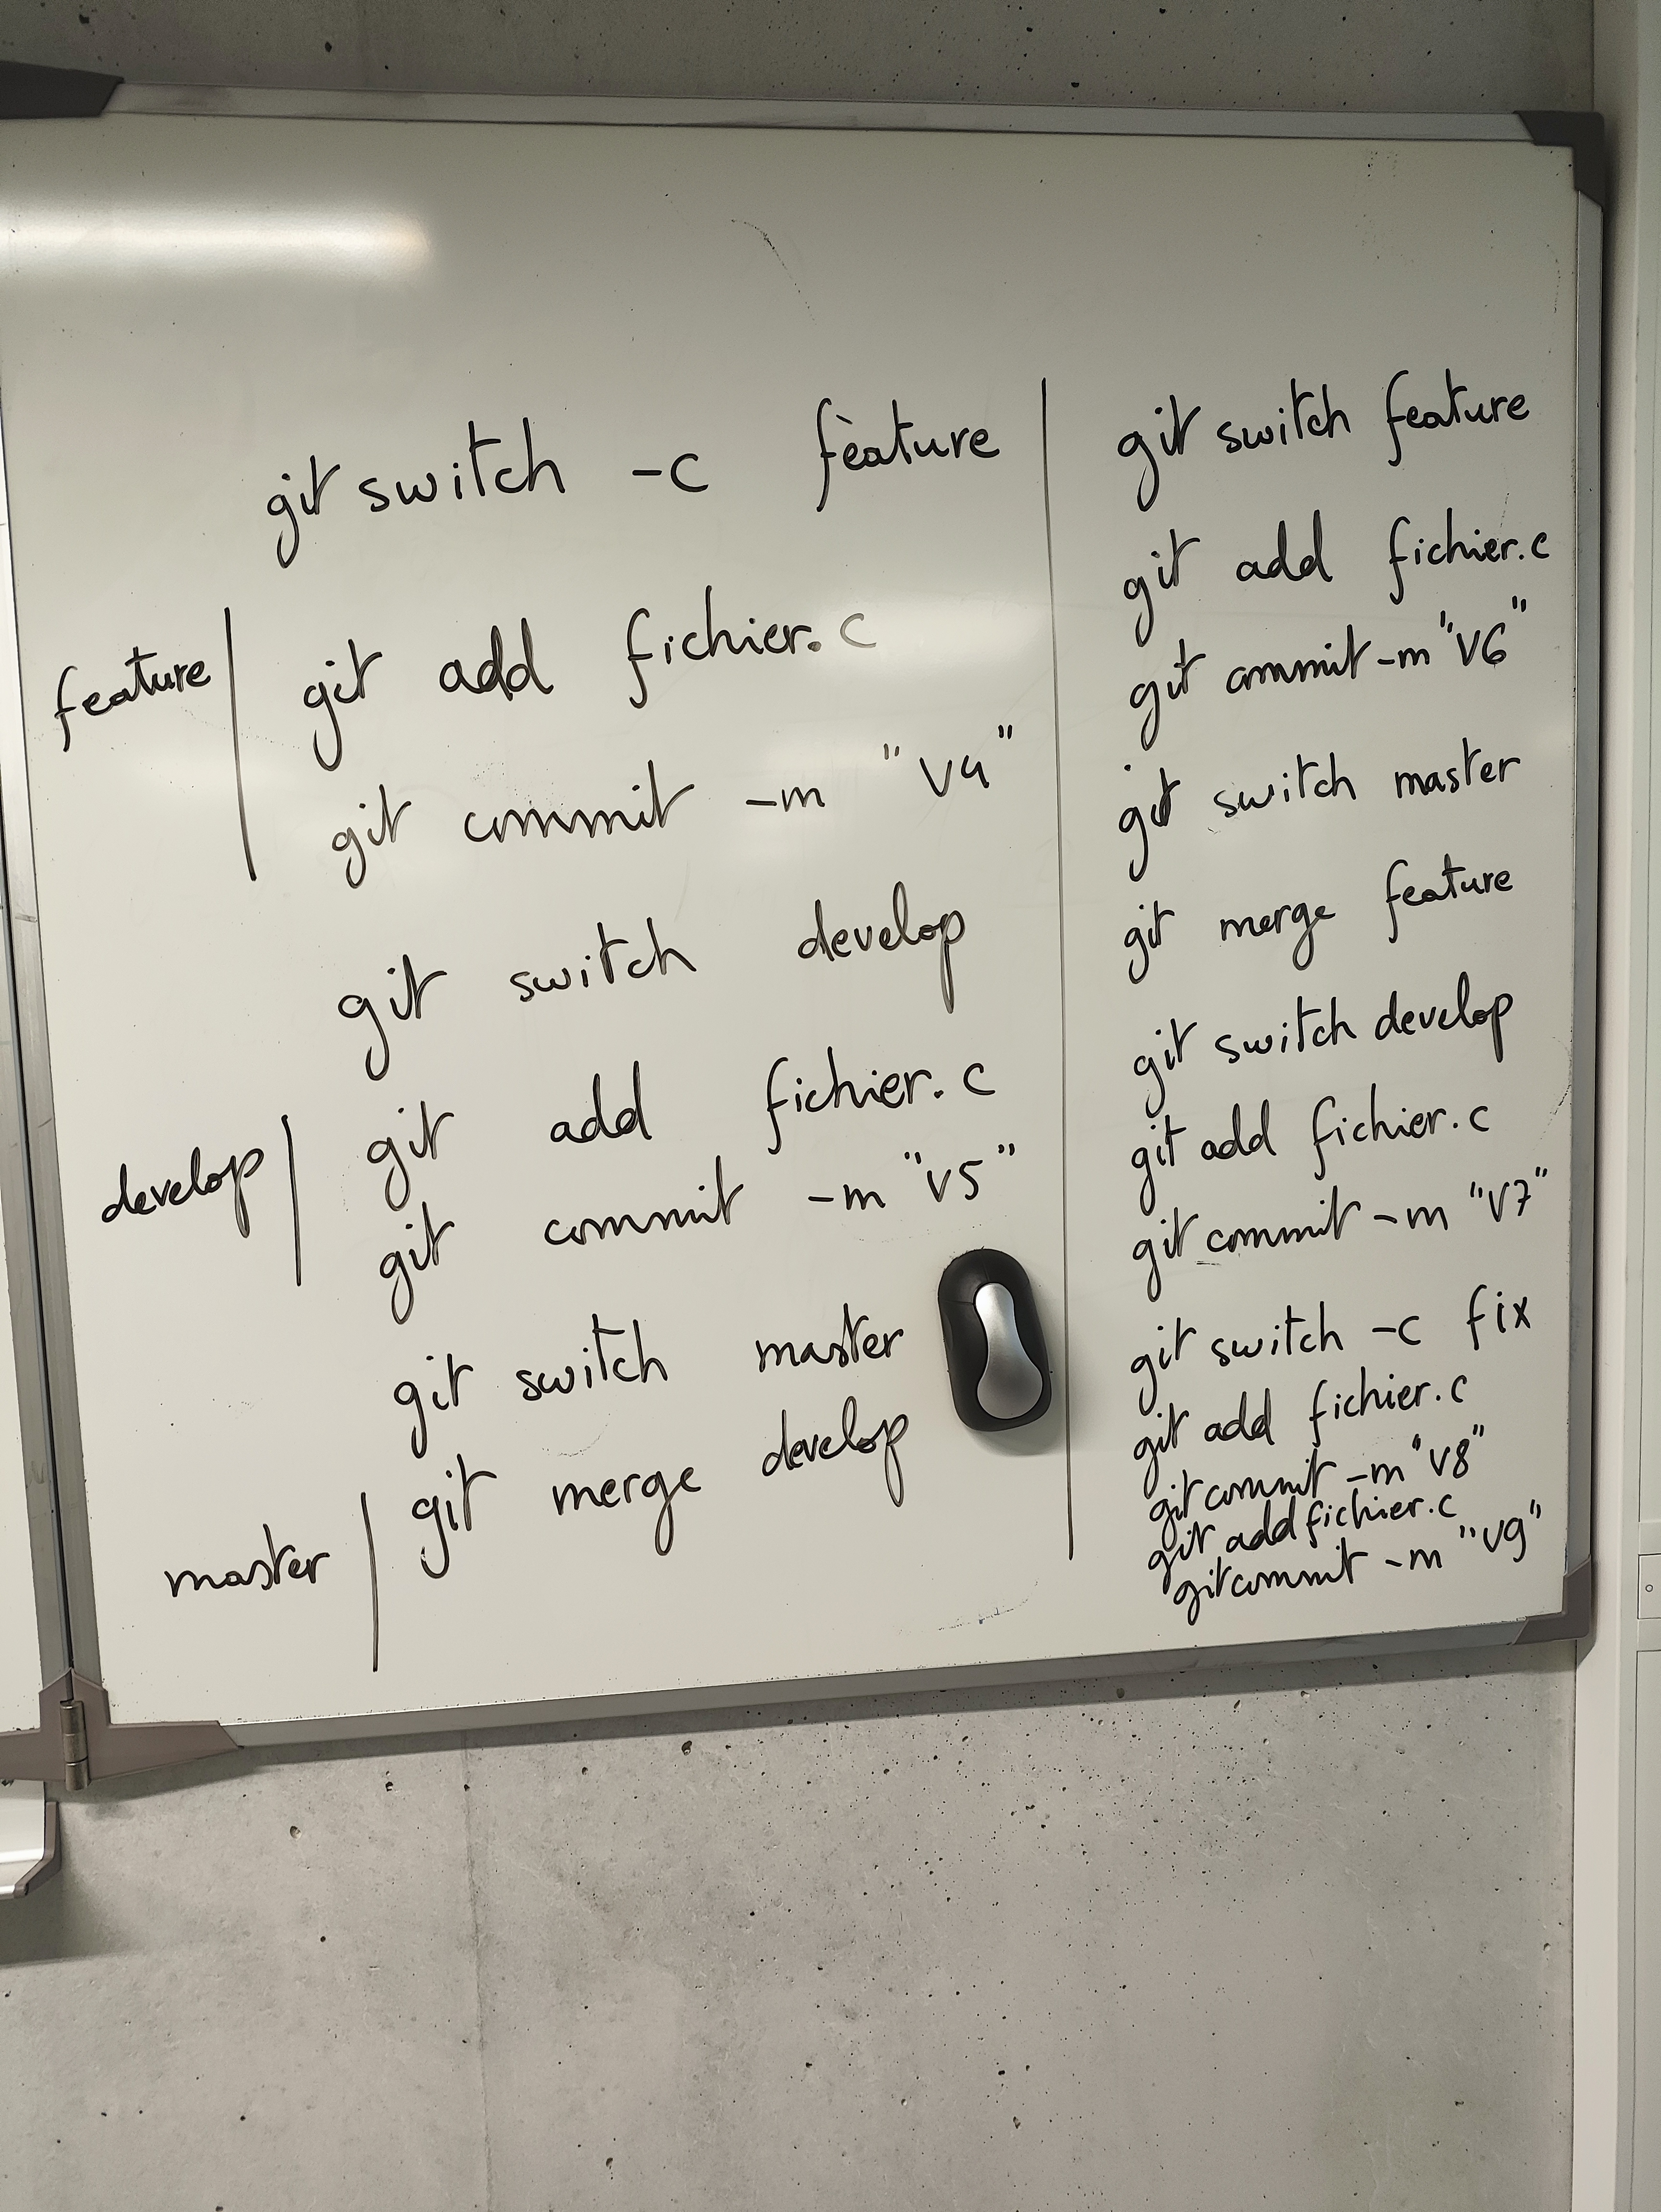 git switch -c feature
feature
git add fichier.c
git commit -m "v4"
git switch develop
develop
git add fichier.c
git commit -m "v5"
git switch master
master
git merge develop
git switch feature
git add fichier.c
git commit -m "v6"
git switch master
git merge feature
git switch develop
git add fichier.c
git commit -m "v7"
git switch -c fix
git add fichier.c
git commit -m "v8"
git add fichier.c
git commit -m "v9"